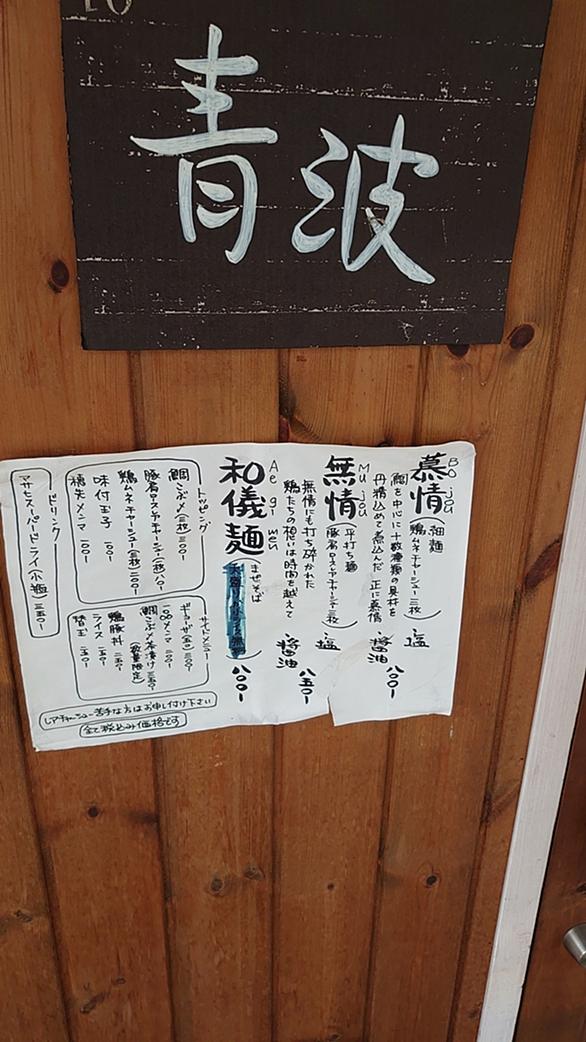 青波
慕情
Bojo
細麺
鶏ムネチャーシュー三枚
鯛を中心に十数種類の具材を
丹精込めて煮込んだ 正に慕情
・塩
・醤油
八〇〇-
無情
Mujo
平打ち麺
豚肩ロースレアチャーシュー三枚
無情にも打ち砕かれた
鶏たちの想いは時間を越えて
・塩
・醤油
八五〇-
和儀麺
Ae gi men
まぜそば
八〇〇-
トッピング
鯛こぶ〆(三枚)三〇〇-
鶏ムネチャーシュー(三枚)二〇〇-
味付玉子 一〇〇-
穂先メンマ 一〇〇-
サイドメニュー
ギョーザ(五ケ)三〇〇-
鯛こぶ〆茶漬け 三五〇-
(数量限定)
鶏豚丼 二五〇-
ライス 一五〇-
替玉 一五〇-
ドリンク
アサヒスーパードライ(小瓶) 三五〇-
レアチャーシュー苦手な方はお申し付け下さい
全て税込み価格です